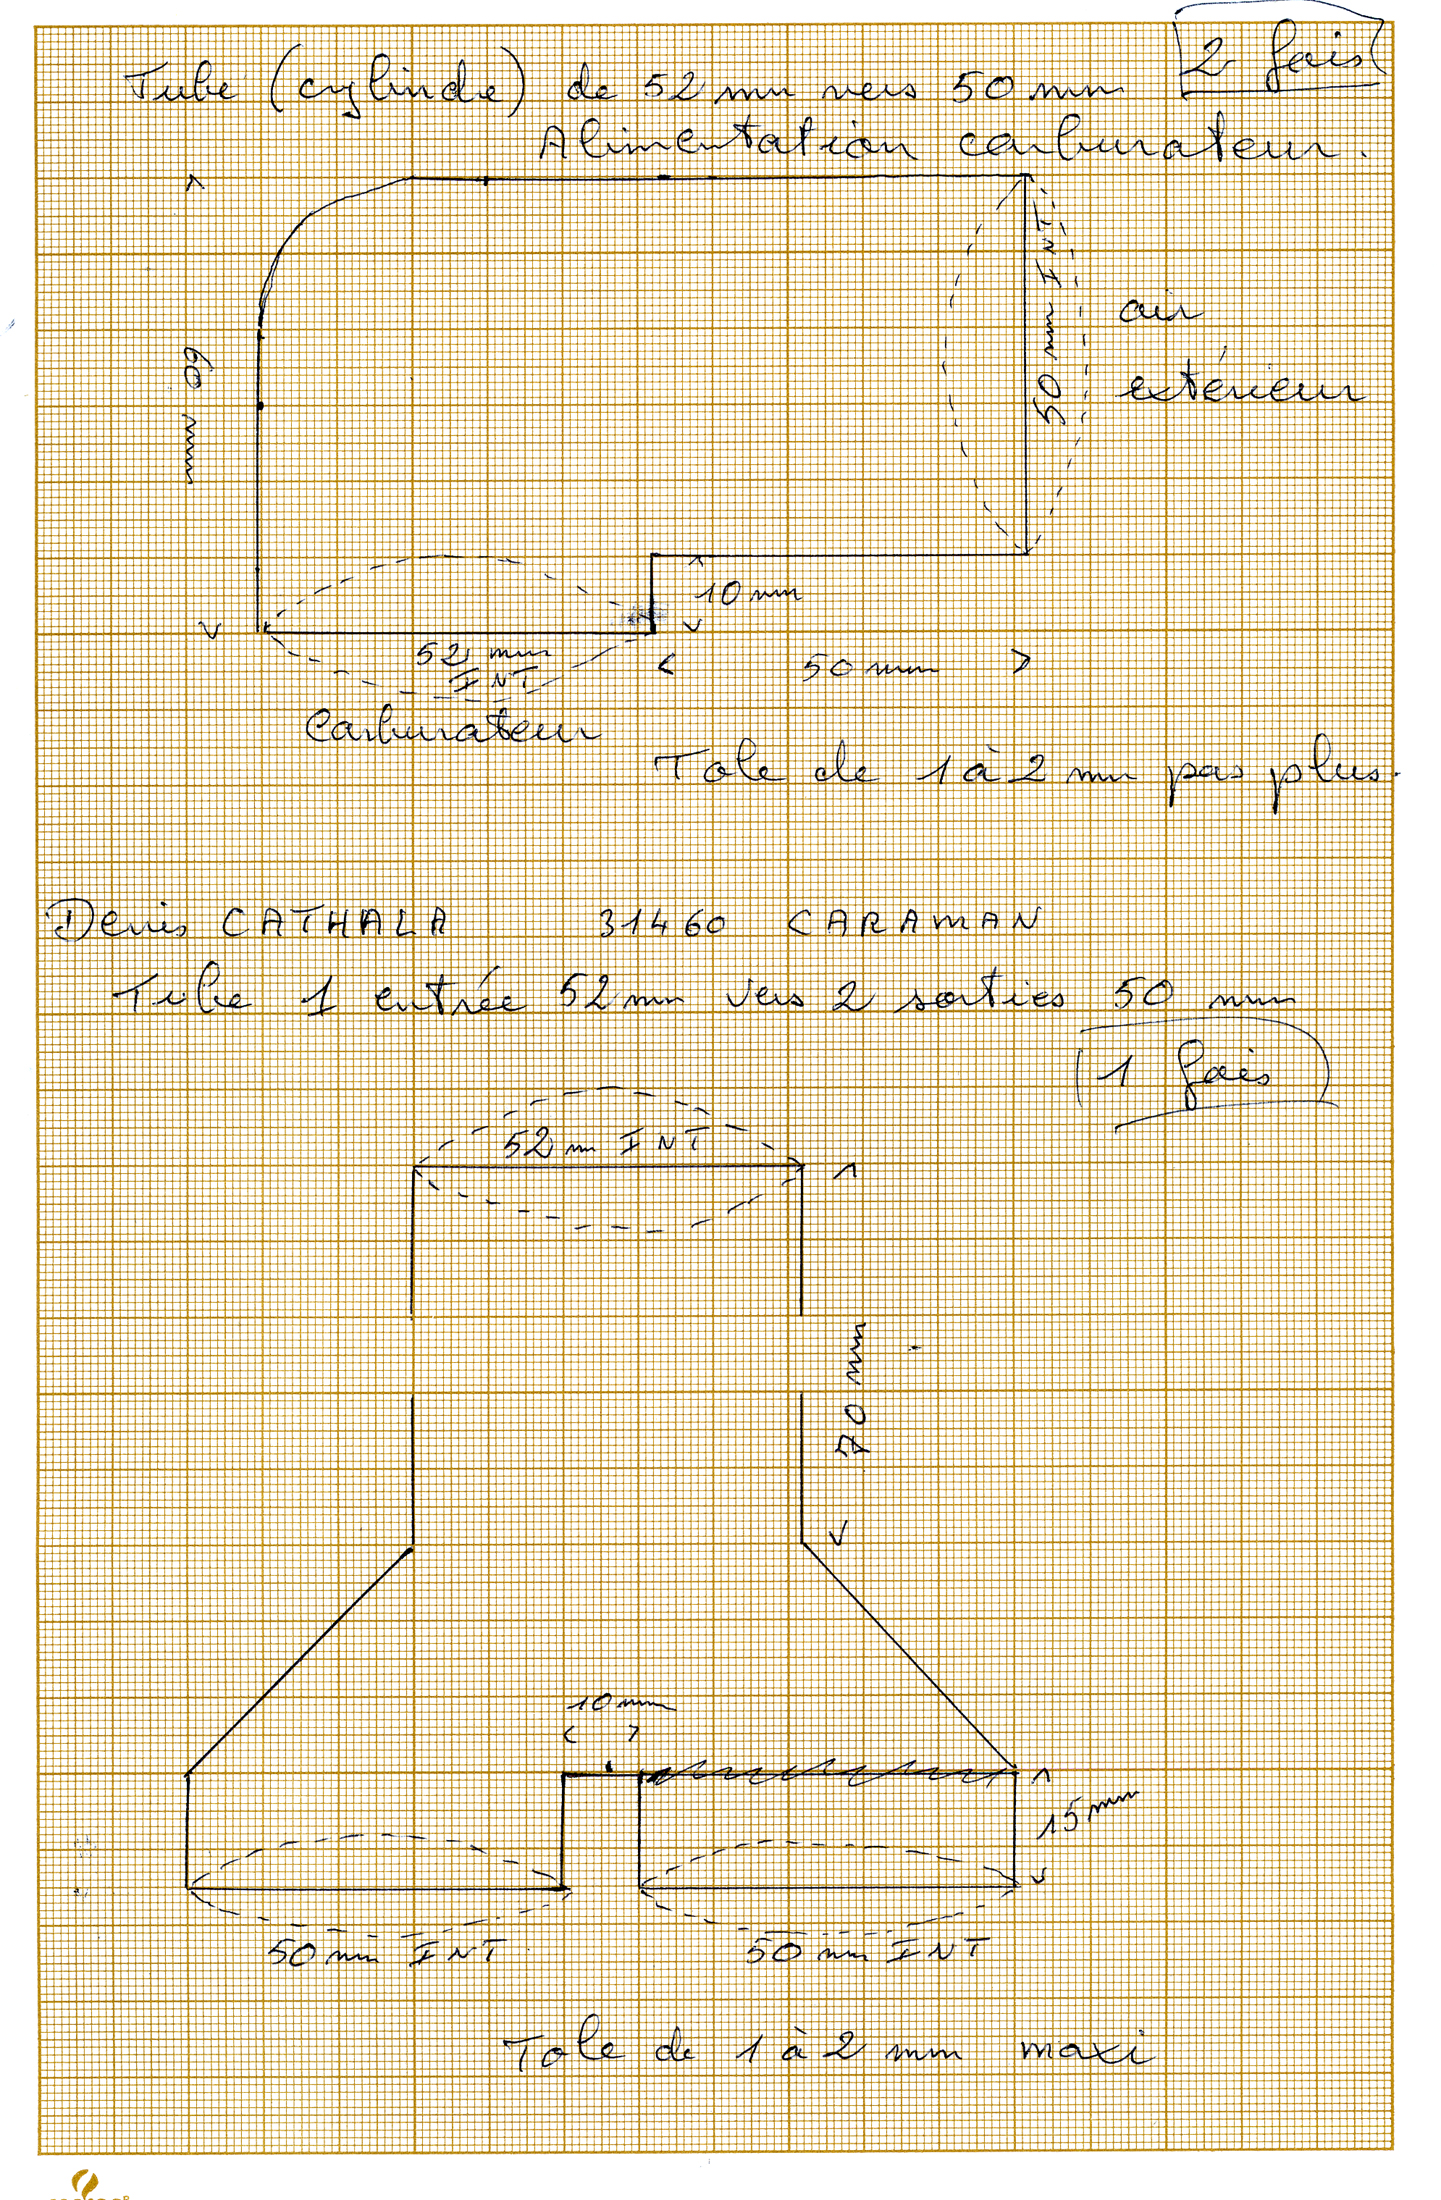 2 fois
Tube (cylindre) de 52 mm vers 50 mm
Alimentation carburateur.
60 mm
50 mm INT.
air
extérieur
10 mm
52 mm
INT
50 mm
Carburateur
Tole de 1 à 2 mm pas plus.
Denis CATHALA 31460 CARAMAN
Tube 1 entrée 52 mm vers 2 sorties 50 mm
1 fois
52 m INT
70 mm
10 mm
15 mm
50 mm INT 50 mm INT
Tole de 1 à 2 mm maxi